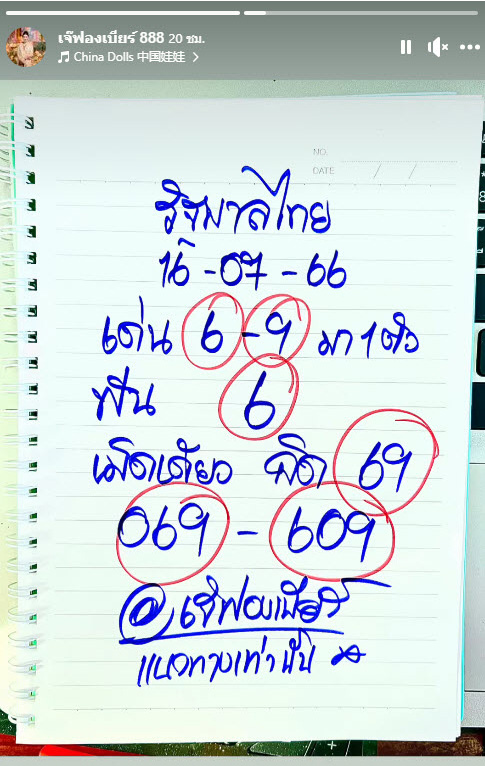 เจ๊ฟองเบียร์ 888 20 ชม.
China Dolls 中国娃娃
NO.
DATE / /
รัฐบาลไทย
16-07-66
เด่น 6-9 มา 1 ตัว
ฟัน 6
เม็ดเดียว ติด 69
069 - 609
@เจ๊ฟองเบียร์
แนวทางเท่านั้น